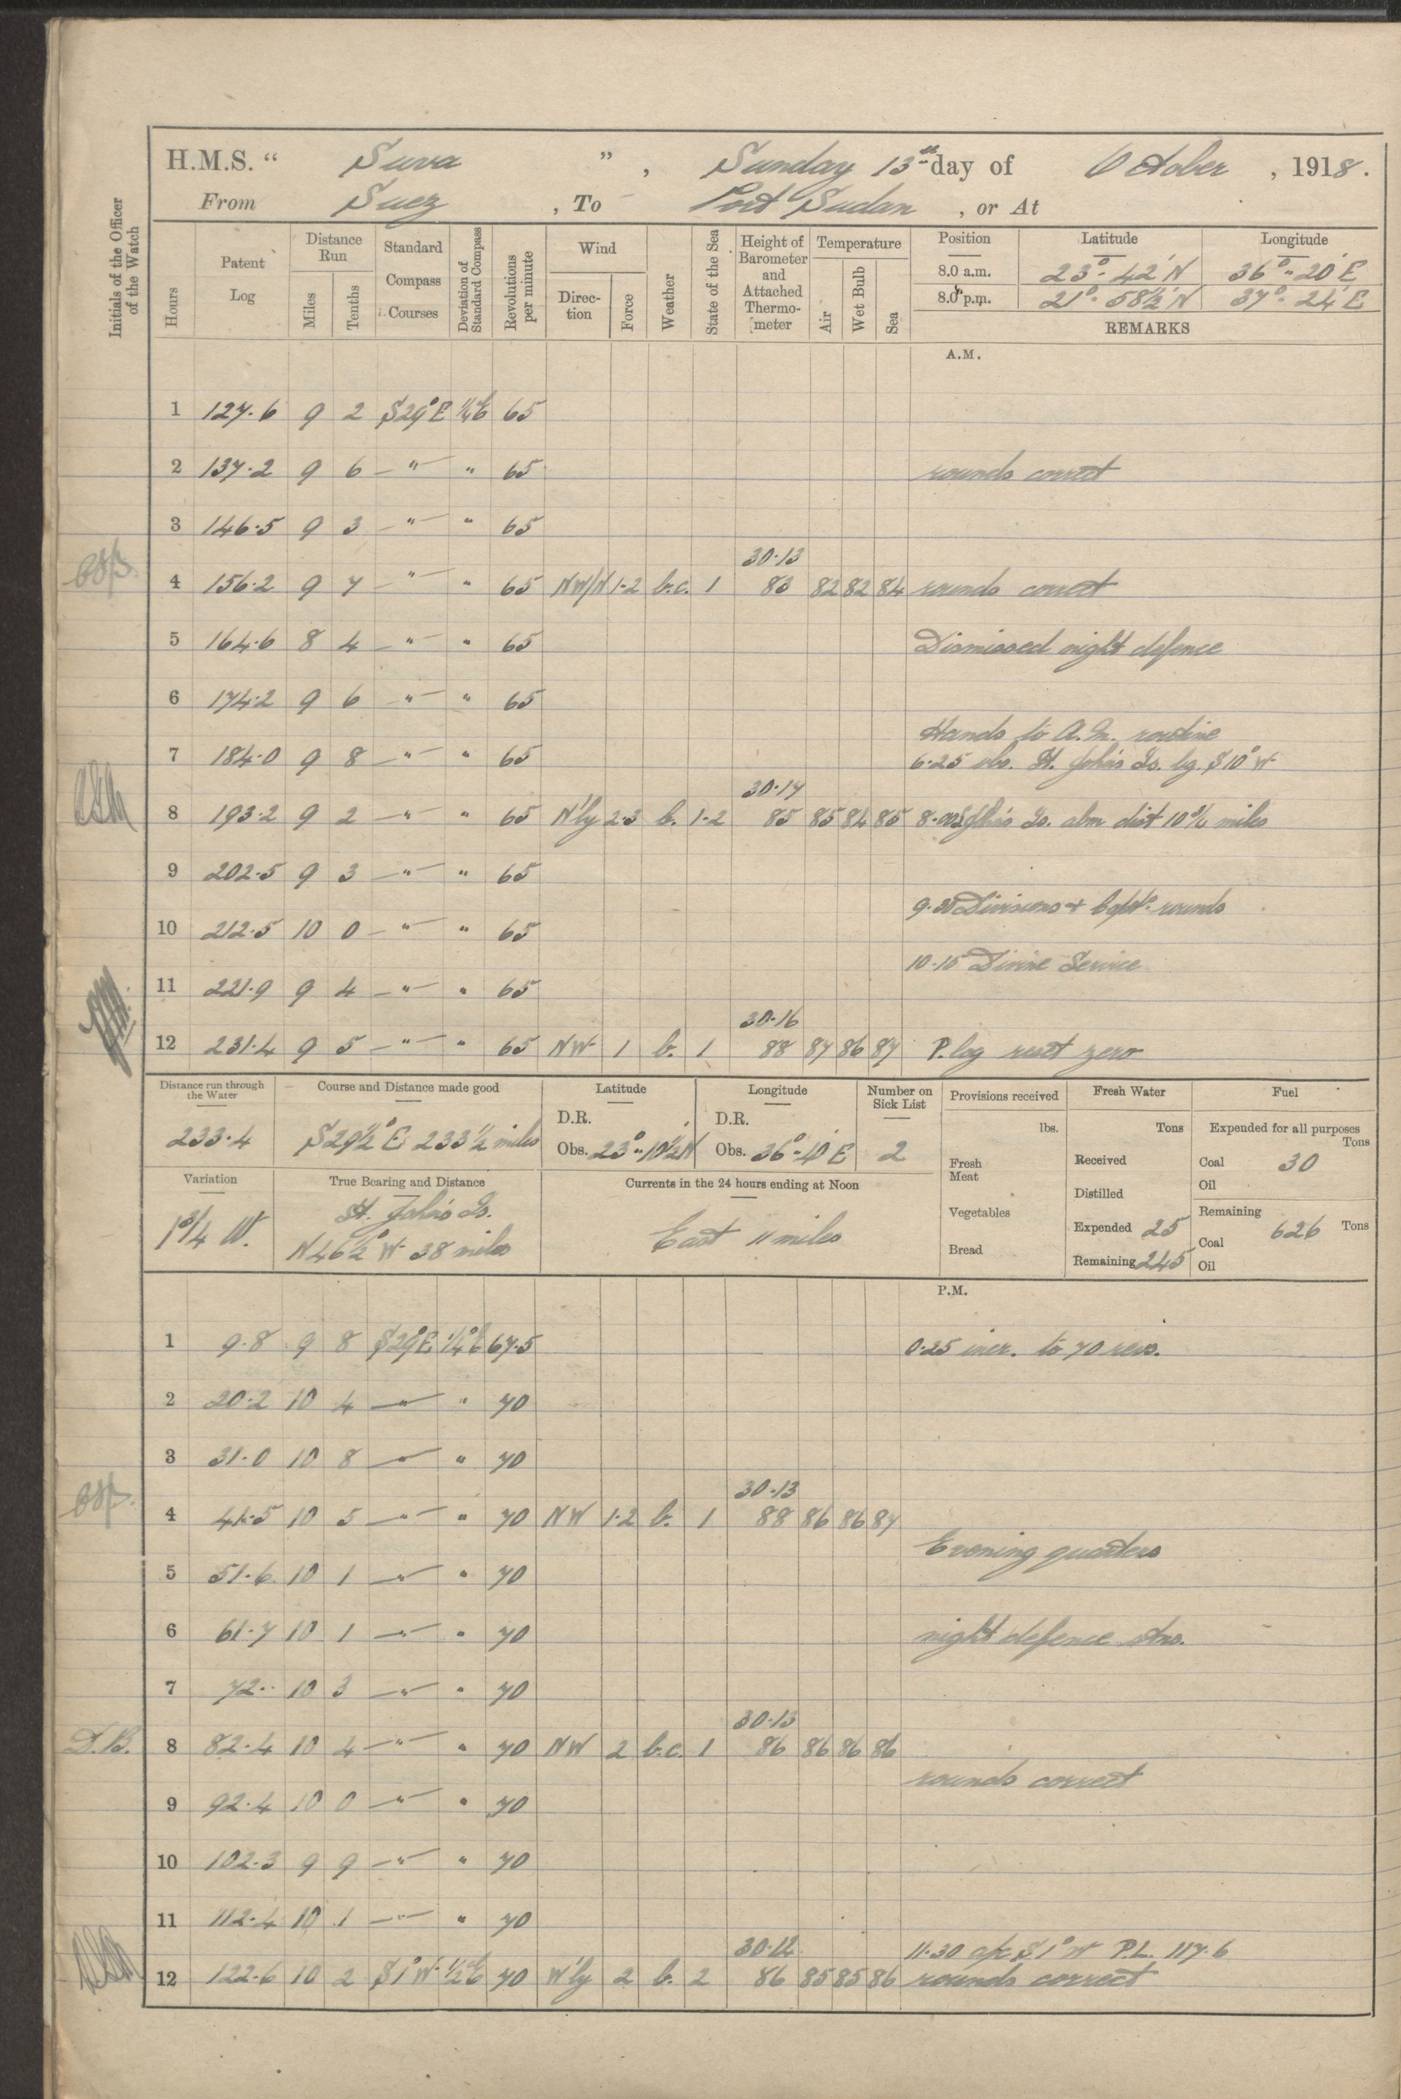 H.M.S. " Suva ", Sunday 13th day of October, 1918.
From Suez, To Port Sudan, or At
Initials of the Officer of the Watch
Hours
Patent Log
Distance Run
Miles
Tenths
Standard Compass Courses
Deviation of Standard Compass
Revolutions per minute
Wind
Direc-tion
Force
Weather
State of the Sea
Height of Barometer and Attached Thermo-meter
Temperature
Air
Wet Bulb
Sea
Position Latitude Longitude
8.0 a.m. 23°-42'N 36°-20'E
8.0 p.m. 21°-58½'N 37°-24'E
REMARKS
A.M.
1 127.6 9 2 S29°E ¼°E 65
2 137.2 9 6 " " 65 rounds correct
3 146.5 9 3 " " 65
30.13
4 156.2 9 7 " " 65 NW/N 1-2 b.c. 1 83 82 82 84 rounds correct
5 164.6 8 4 " " 65 Dismissed night defence
6 174.2 9 6 " " 65
Hands to A.M. routine
7 184.0 9 8 " " 65 6.25 obs. St. John's Is. bg. S10°W
30.14
8 193.2 9 2 " " 65 N'ly 2-3 b. 1-2 85 85 84 85 8.00 St John's Is. abm dist 10¾ miles
9 202.5 9 3 " " 65
9.30 Divisions + Capt's rounds
10 212.5 10 0 " " 65
10.15 Divine Service
11 221.9 9 4 " " 65
30.16
12 231.4 9 5 " " 65 NW 1 b. 1 88 87 86 87 P. log reset zero
Distance run through the Water
233.4
Course and Distance made good
S29½°E 233½ miles
Latitude
D.R.
Obs. 23°-10½'N
Longitude
D.R.
Obs. 36°-40'E
Number on Sick List
2
Provisions received
lbs.
Fresh Meat
Vegetables
Bread
Fresh Water
Tons
Received
Distilled
Expended 25
Remaining 245
Fuel
Expended for all purposes
Tons
Coal 30
Oil
Remaining
Coal 626 Tons
Oil
Variation
1¾ W.
True Bearing and Distance
St. John's Is.
N46½°W 38 miles
Currents in the 24 hours ending at Noon
East 11 miles
P.M.
1 9.8 9 8 S29°E ¼°E 67.5 0.25 incr. to 70 revs.
2 20.2 10 4 " " 70
3 31.0 10 8 " " 70
30.13
4 41.5 10 5 " " 70 NW 1-2 b. 1 88 86 86 87
Evening quarters
5 51.6 10 1 " " 70
6 61.7 10 1 " " 70 night defence stns.
7 72.. 10 3 " " 70
30.13
D.B. 8 82.4 10 4 " " 70 NW 2 b.c. 1 86 86 86 86
rounds correct
9 92.4 10 0 " " 70
10 102.3 9 9 " " 70
11 112.4 10 1 " " 70
30.12 11.30 a/c S1°W P.L. 117.6
12 122.6 10 2 S1°W ½°E 70 W'ly 2 b. 2 86 85 85 86 rounds correct